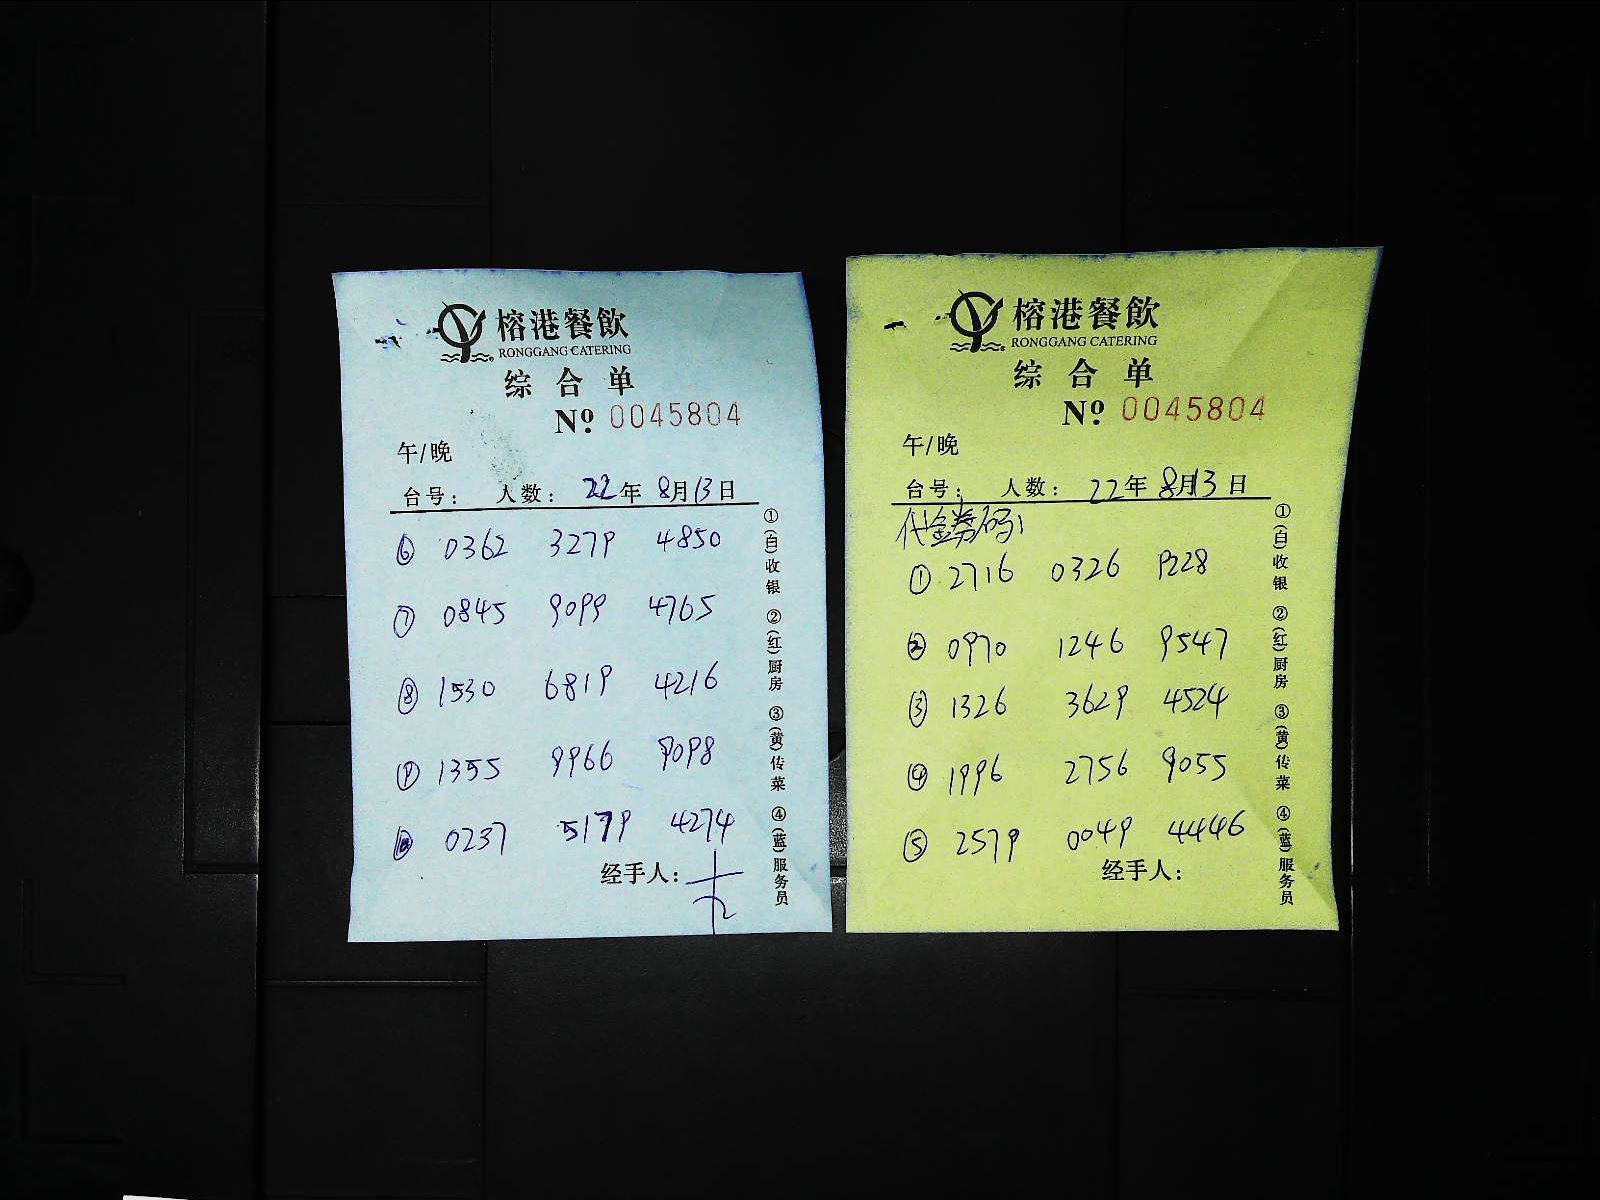 榕港餐飲
RONGGANG CATERING
综合单
Nº 0045804
午/晚
台号: 人数: 22年8月13日
⑥ 0362 3279 4850
⑦ 0845 9099 4765
⑧ 1530 6819 4216
⑨ 1355 9966 9098
⑩ 0237 5179 4274
经手人:
①(白)收银 ②(红)厨房 ③(黄)传菜 ④(蓝)服务员
榕港餐飲
RONGGANG CATERING
综合单
Nº 0045804
午/晚
台号: 人数: 22年8月13日
代金券码:
① 2716 0326 9228
② 0970 1246 9547
③ 1326 3629 4524
④ 1996 2756 9055
⑤ 2579 0049 4446
经手人:
①(白)收银 ②(红)厨房 ③(黄)传菜 ④(蓝)服务员